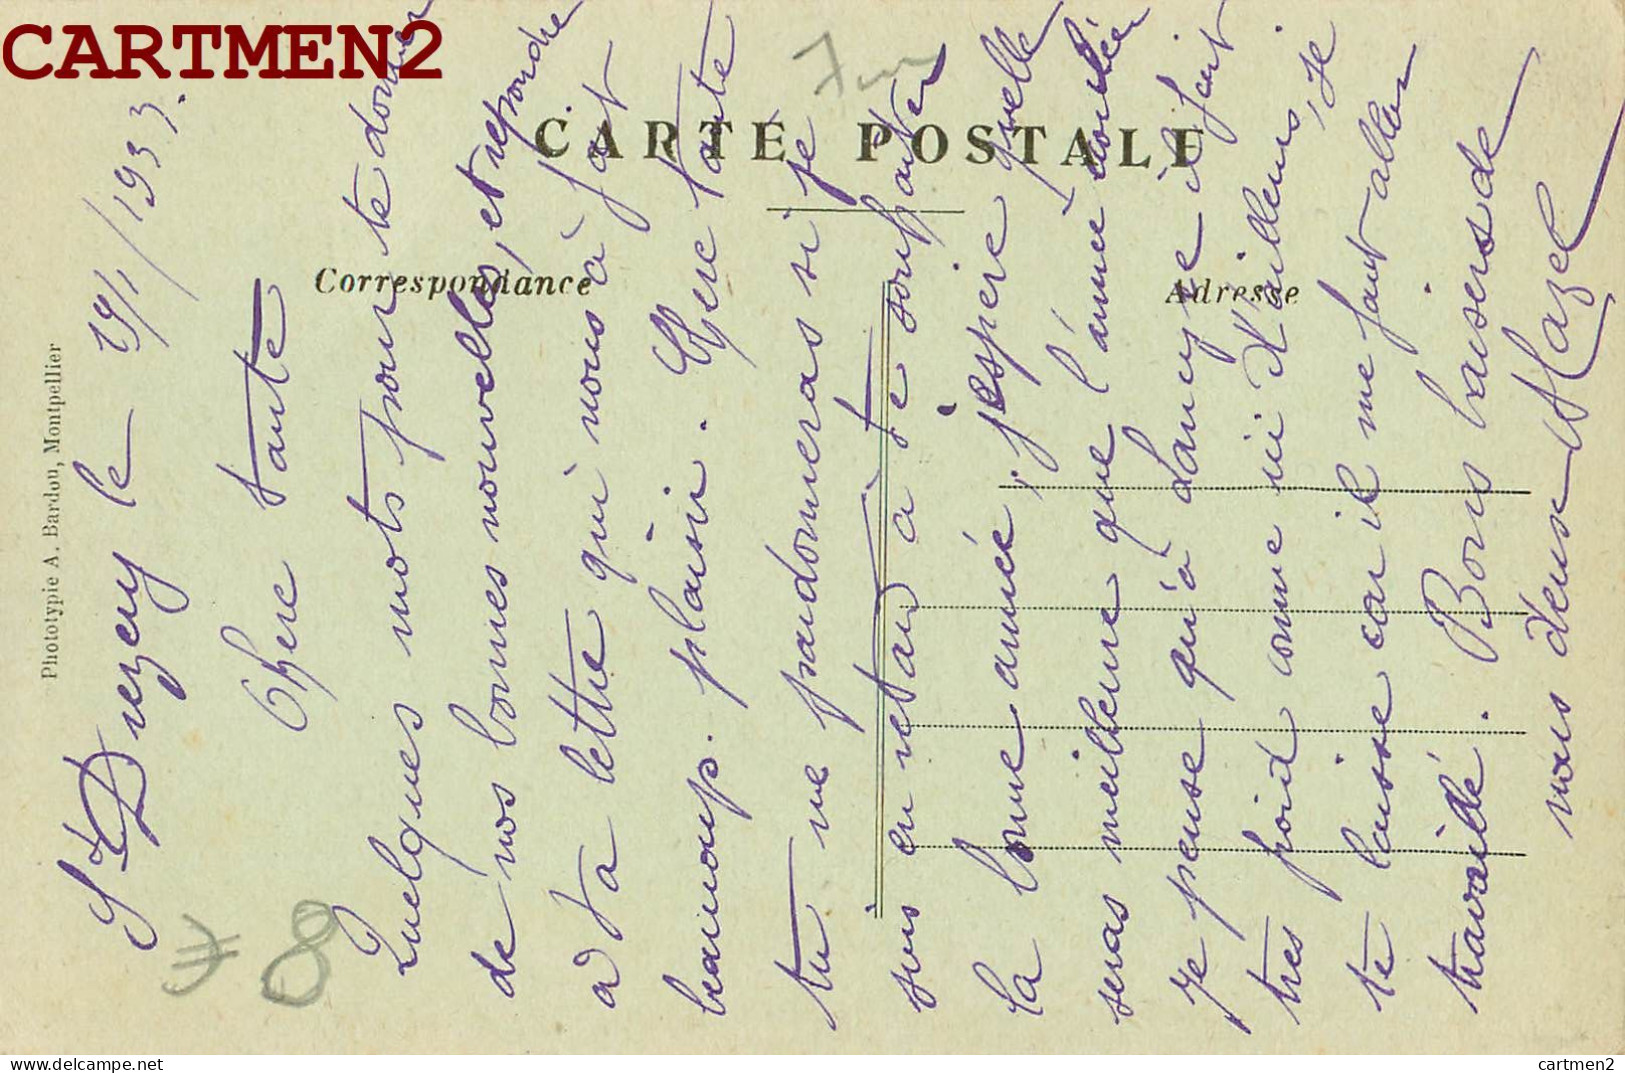 CARTMEN2
CARTE POSTALE
Correspondance
Adresse
Phototypie A. Bardou, Montpellier
St Drezery le 19/1/1933.
Chere tante
Quelques mots pour te donner
de nos bonnes nouvelles, et repondre
a ta lettre qui nous à fait
beaucoup plaisir. Chere tante
tu me pardonneras si je
suis en retard à te souhaiter
la bonne année, j'espere quelle
seras meilleure que l'année écoulée
Je pense qu'à il fait
tres froid comme ici D'ailleurs, Je
te laisse car il me faut aller
travaillé. Bons baisers de
nous deux Mazel
8
cartmen2
www.delcampe.net